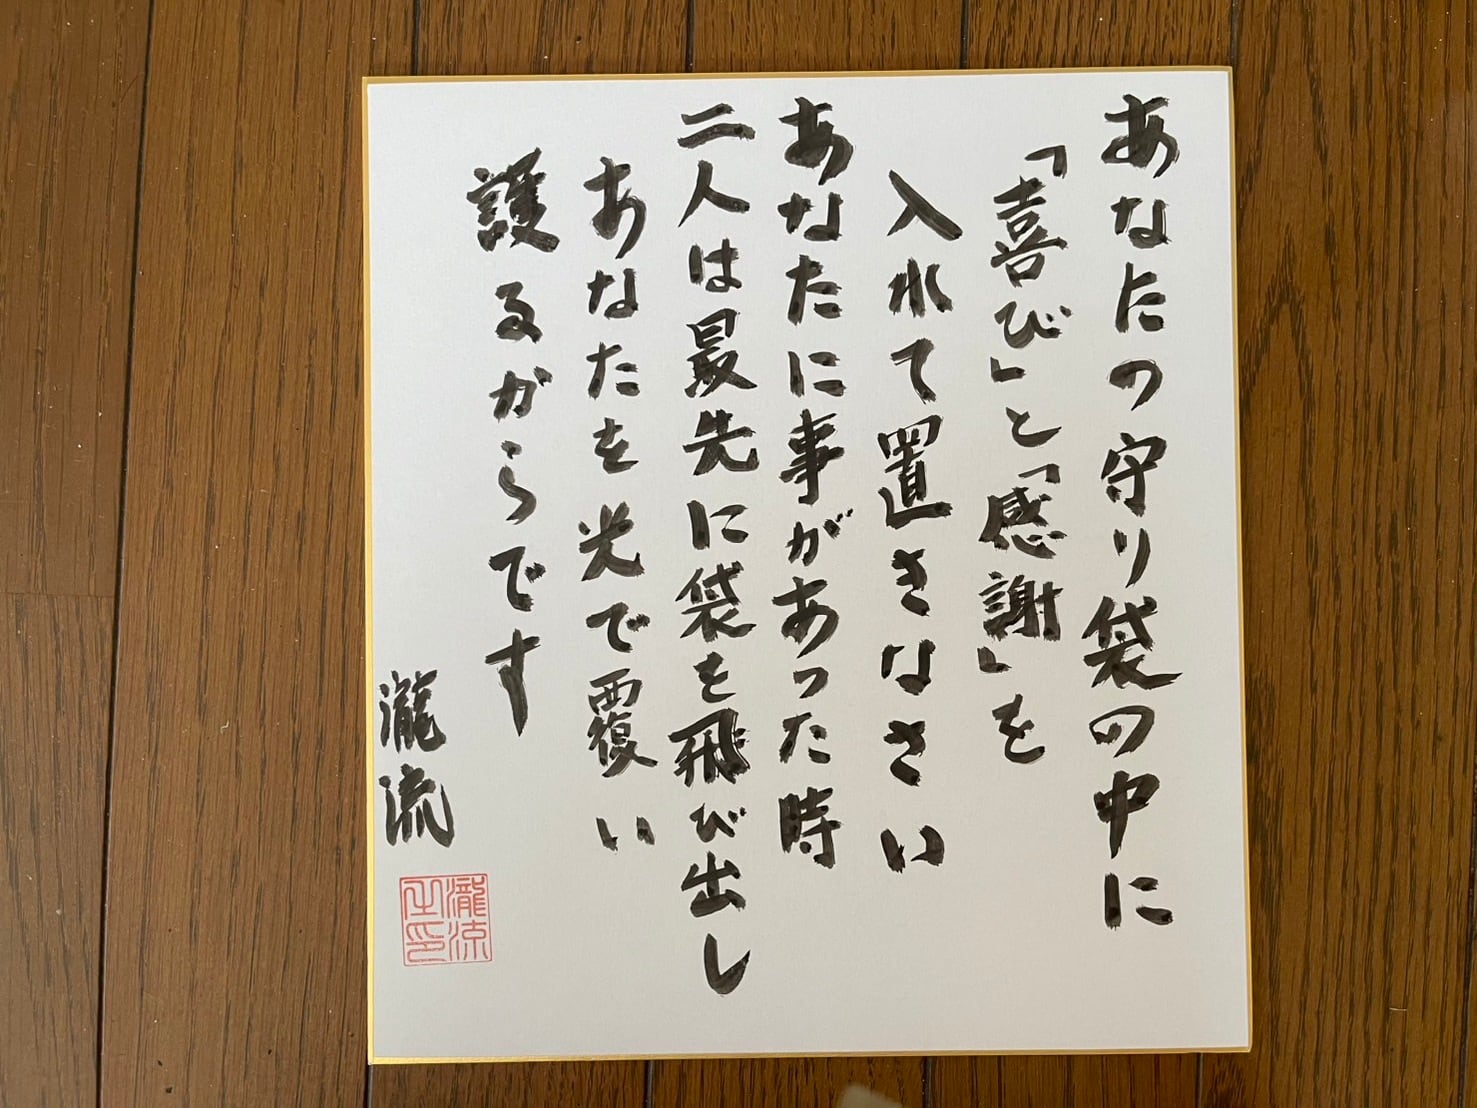 あなたの守り袋の中に
「喜び」と「感謝」を
入れて置きなさい
あなたに事があった時
二人は最先に袋を飛び出し
あなたを光で覆い
護るからです
瀧流
瀧涼
之印